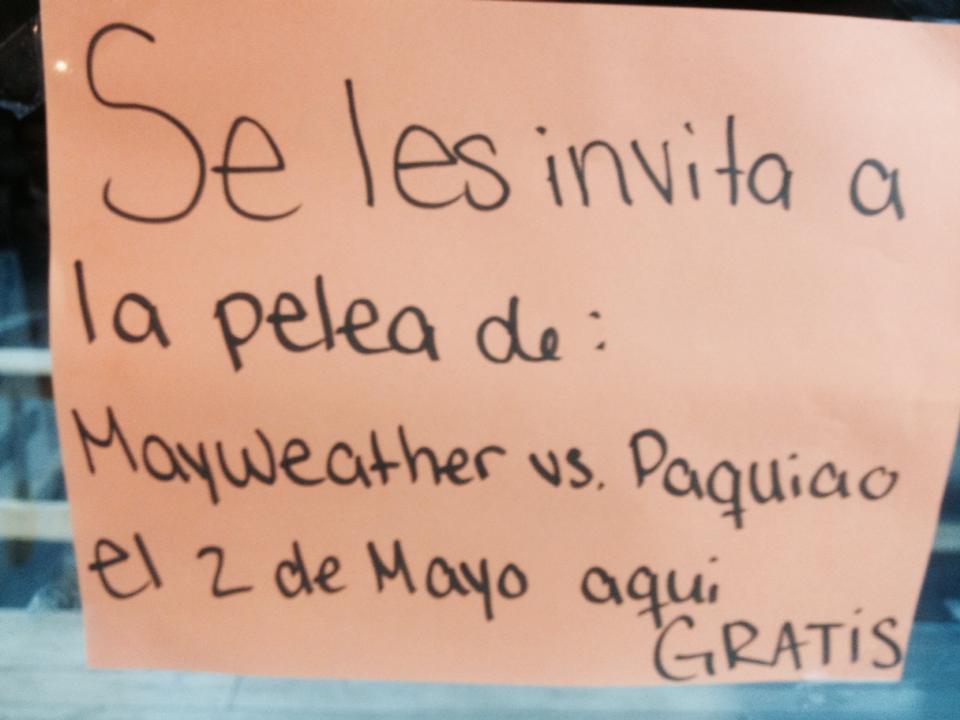 Se les invita a
la pelea de:
Mayweather vs. Paquiao
el 2 de Mayo aqui
GRATiS